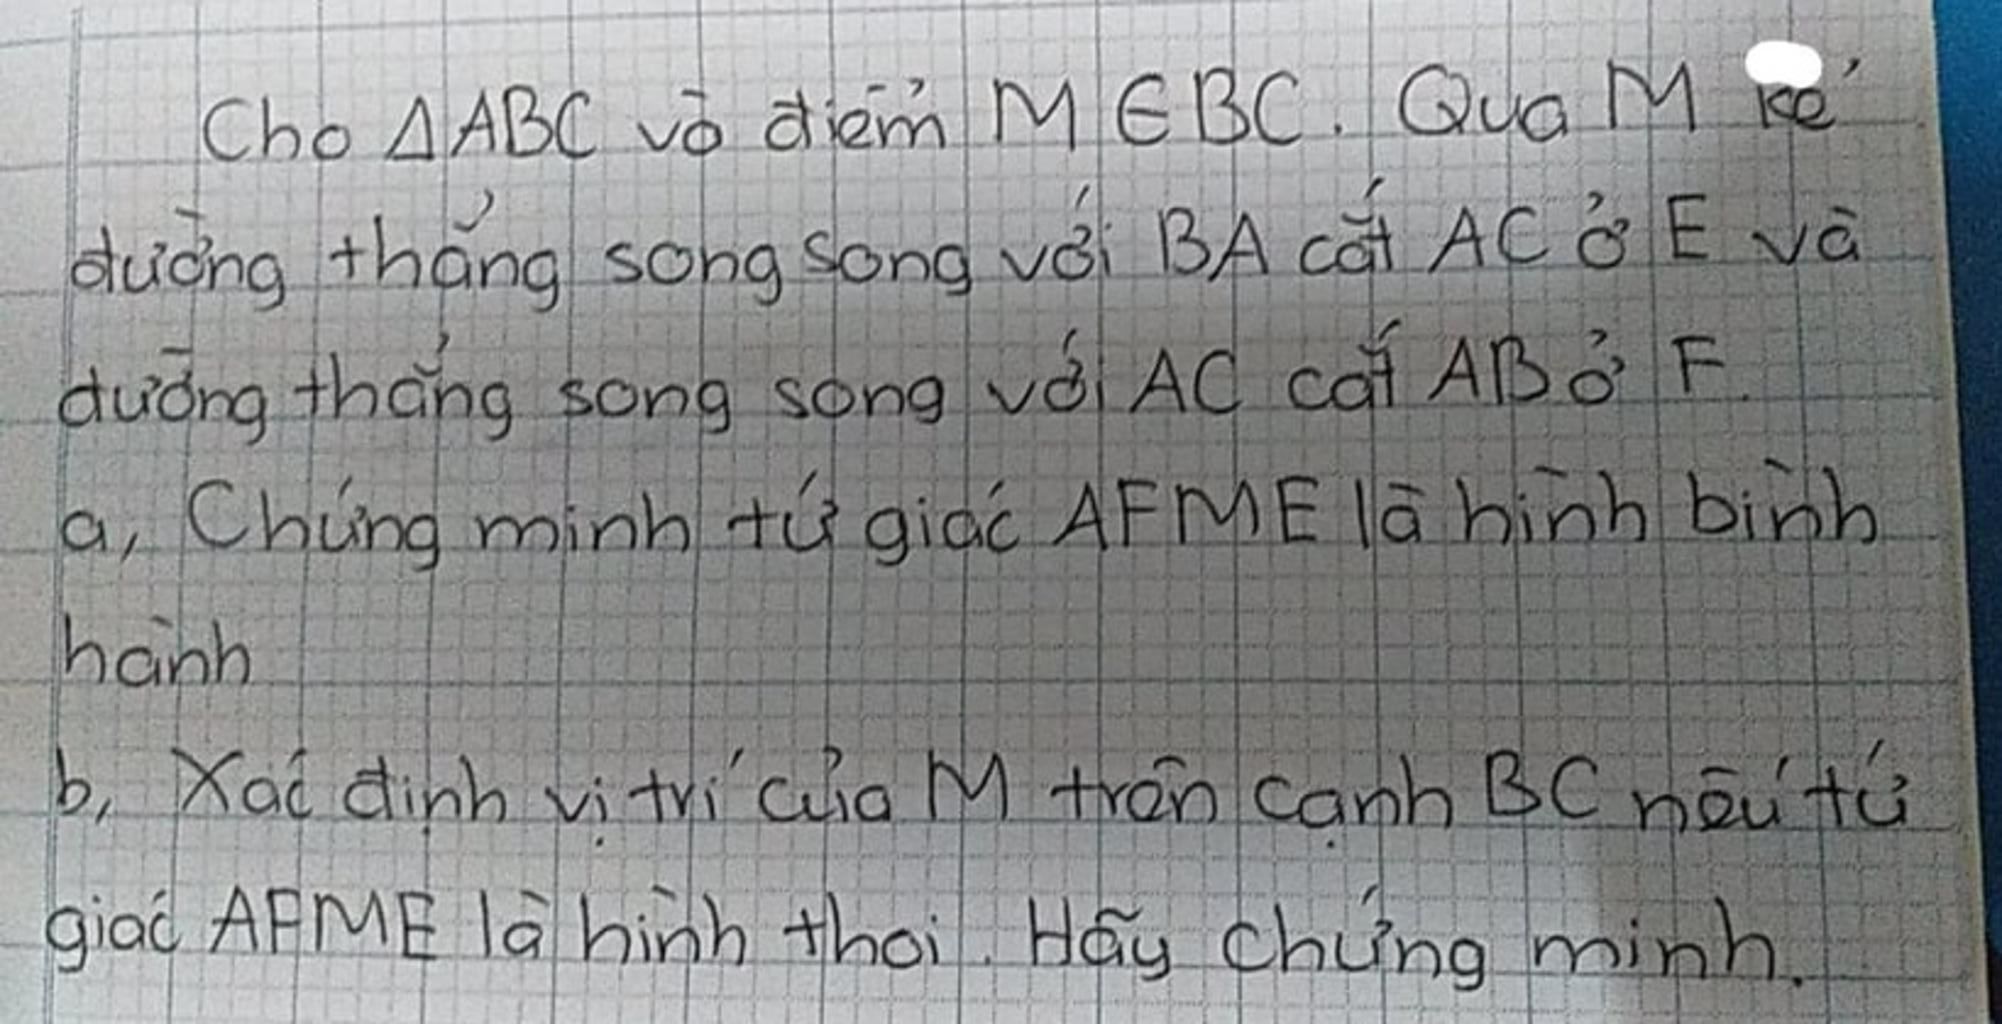 Cho ΔABC và điểm M ∈ BC. Qua M kẻ
đường thẳng song song với BA cắt AC ở E và
đường thẳng song song với AC cắt AB ở F.
a, Chứng minh tứ giác AFME là hình bình
hành
b, Xác định vị trí của M trên cạnh BC nếu tứ
giác AFME là hình thoi. Hãy chứng minh.